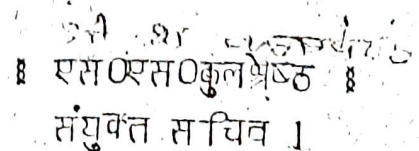 ० एस0एस0कुलश्रेष्ठ ०
संयुक्त सचिव ।